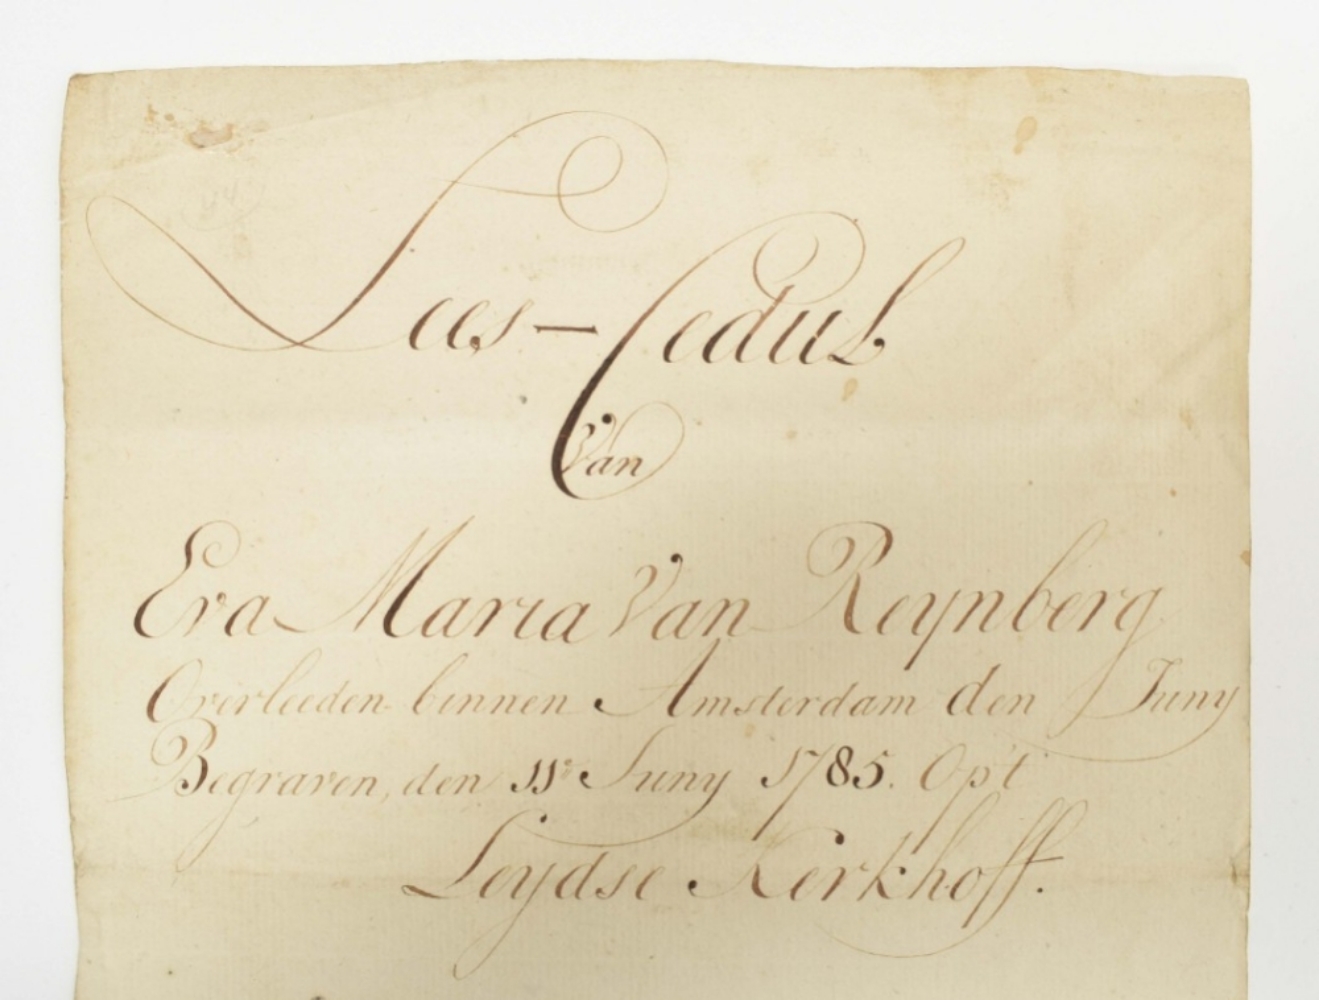 Lees-Cedul
Van
Eva Maria Van Reynberg
Overleeden binnen Amsterdam den Juny
Begraven, den 11e Juny 1785. Op't
Leydse Kerkhoff.